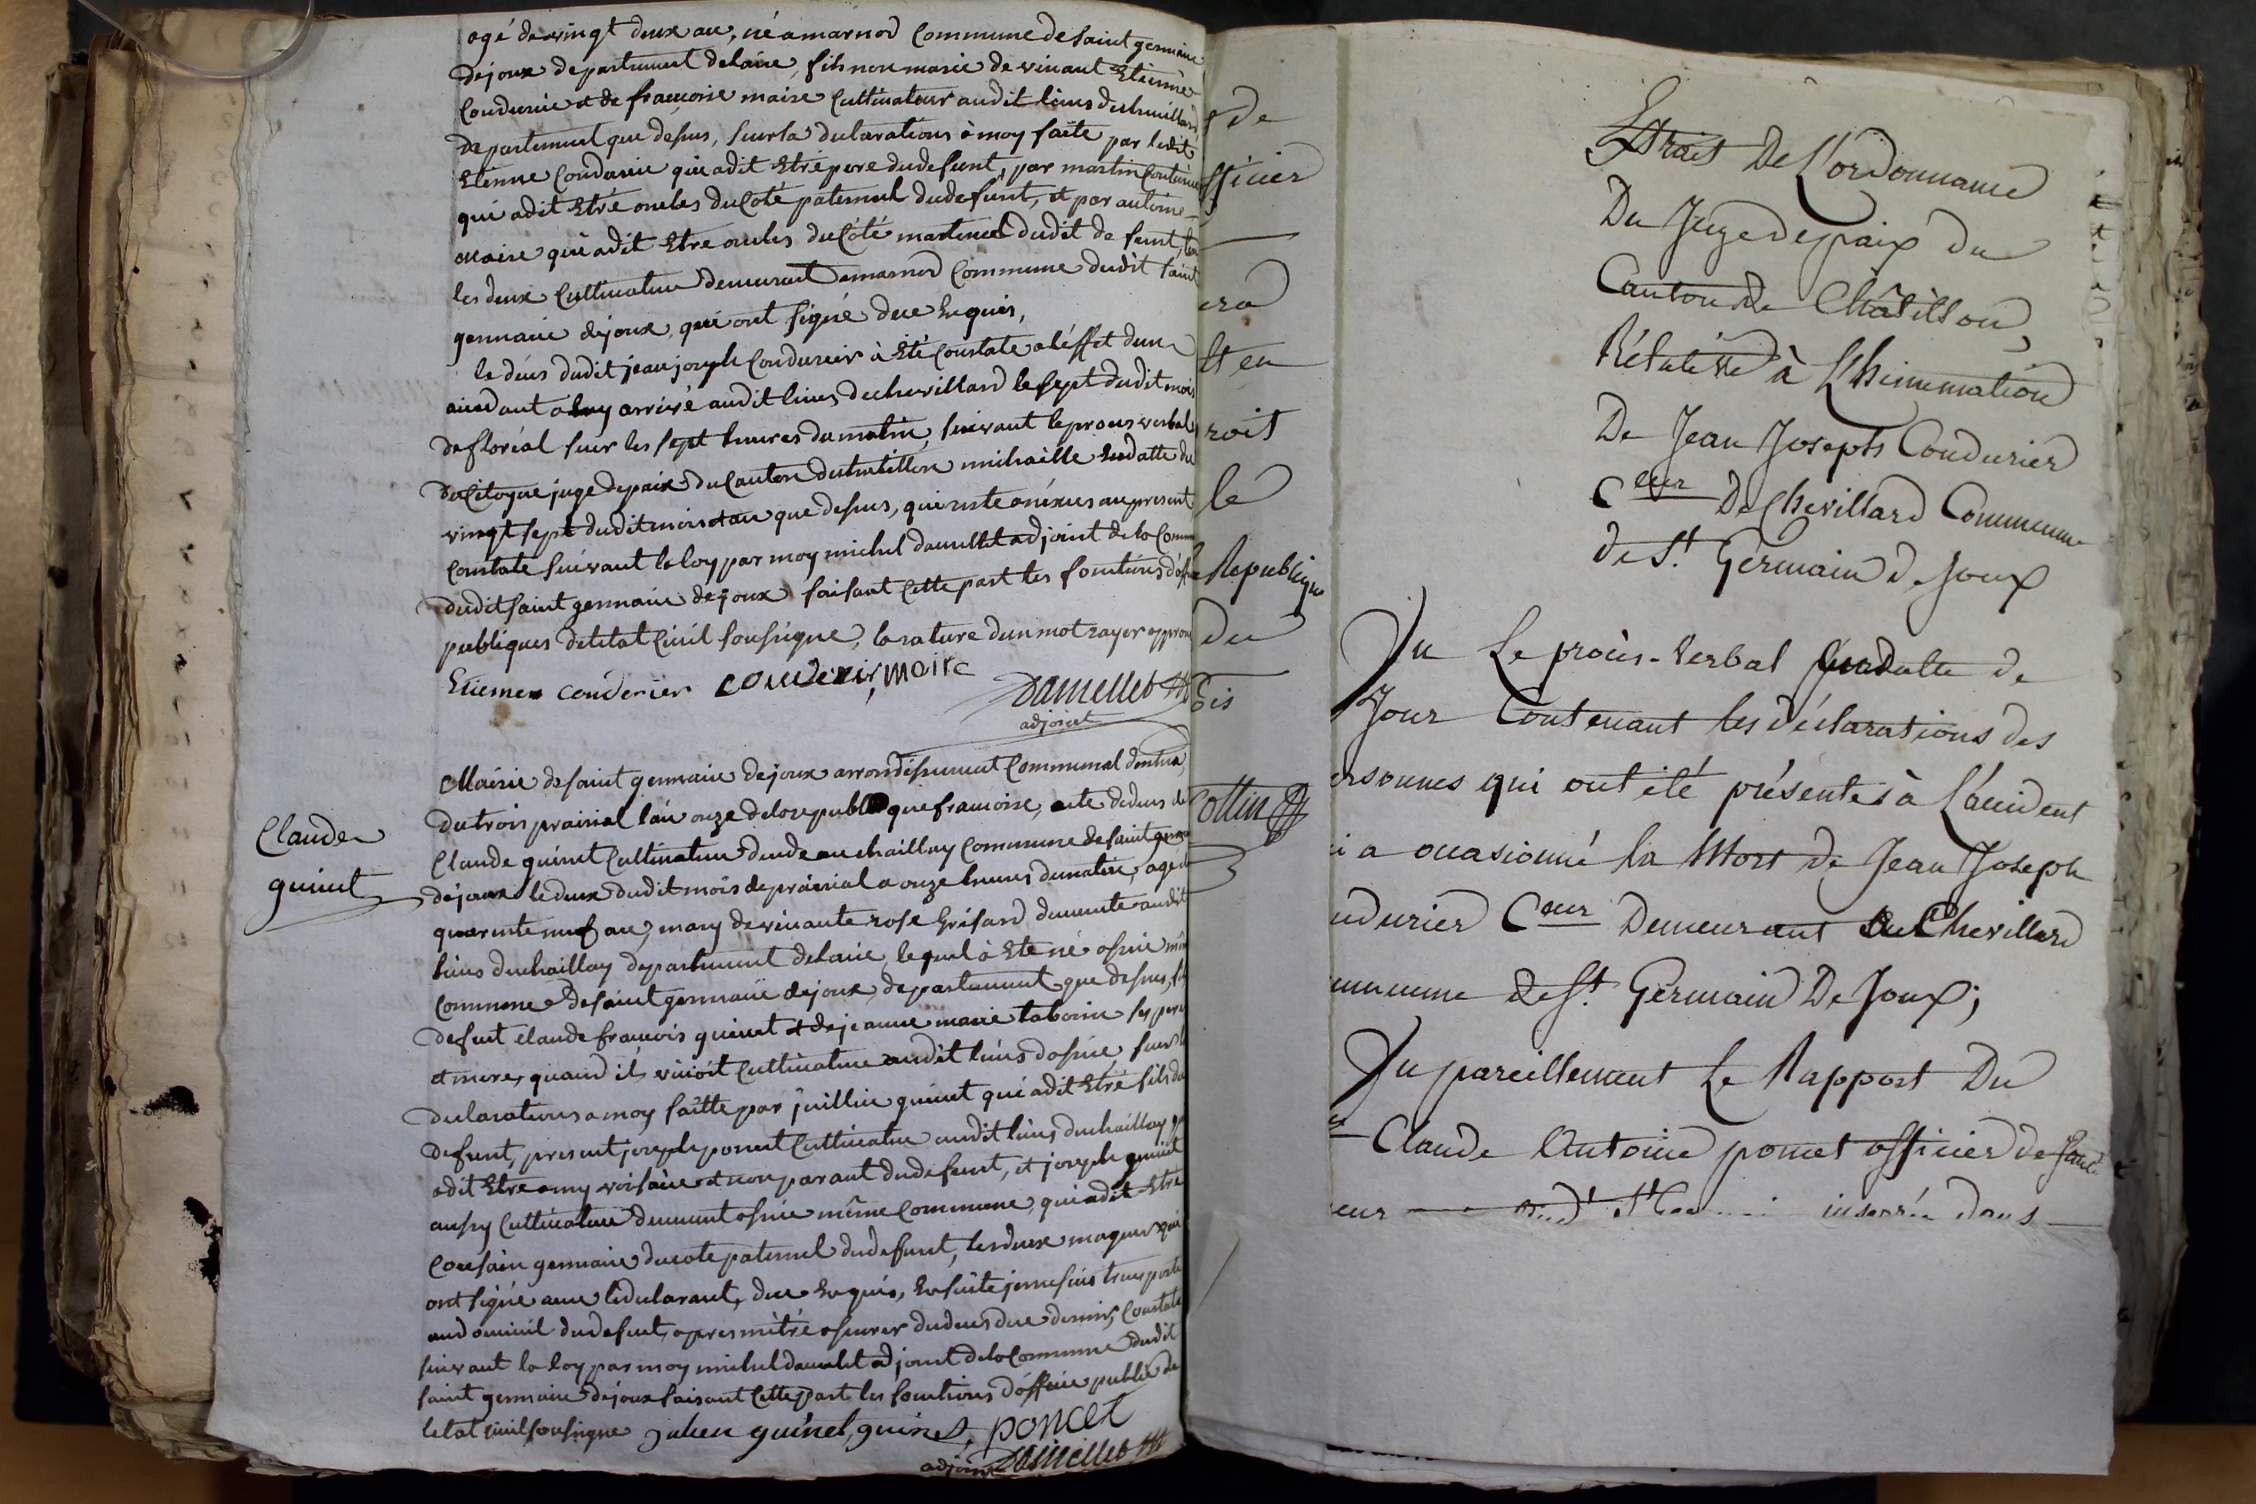 agé de vingt deux an, né a marnod Commune de saint germain
dejoux departement delain, fils non marié de vivant Etienne
Condurier et de francoise maire Cultivateur audit lieus duchevillard
departement que desus, sur la declarations à moy faite par ledit
Etienne Condurier qui adit Etre pere dudefunt, par martin Condurier
qui adit Etre oncles du Coté paternel dudefunt, et par antoine
maire qui adit Etre oncles du Côté marternel dudit defunt, tou
les deux Cultivateur demeurant amarnod Commune dudit saint
germain dejoux, qui ont signé dece Enquis,
le déces dudit jean joseph Condurier à Eté Constaté a léffet dun
accidant a luy arrivé audit lieus dechevillard le sept dudit mois
de floréal sur les sept heures du matin, suivant le proces verbal
du Citoyen juge de paix du Canton de chatillon michaille Endatte du
vingt sept dudit mois et an que desus, qui reste anéxées au present
Constaté suivant la loy par moy michel damellet adjoint de la Comm
dudit saint germain dejoux faisant Cette part les fonctions d'off
publiques delétat Civil sousigné, la rature dun mot rayer approu
Etienne conderier condurier, maire
Damellet
adjoint
Claude
guinet
Mairie de saint germain dejoux arrondissement Communal de nantua
du trois prairial l'an onze de la republique francoise, acte de deces de
Claude guinet Cultivateur duchaillay Commune de saint germain
dejoux le deux dudit mois de prairial a onze heures du matin, agé de
quarente neuf an, mary de vivante rose Grisard demeurante audit
lieus duchaillay departement delain, lequel à Eté né
Commune de saint germain dejoux, departement que desus, fils
defunt claude francois guinet et de jeanne marie tabourin ses pere
et mere, quand ils vivoit Cultivateur audit lieus, sur la
declarations a moy faitte par juillien guinet qui adit Etre fils du
defunt, present joseph poncet Cultivateur audit lieus duchaillay qui
adit Etre amy voisain et non parant dudefunt, et joseph guinet
aussy Cultivateur même Commune, qui adit Etre
Cousain germain ducoté paternel dudefunt, lesdeux qui
ont signé avec ledeclarant, dece Enquis, Ensuite jeme suis transporté
audomicil dudefunt, apres mêtre assurer du deces dece dernier, Constaté
suivant la loy par moy michel damellet adjoint de la Commune dudit
saint germain dejoux faisant Cette part les fonctions d'officie public de
letat civil sousigné julien guinet, guinet, poncet
adjoint Damellet
de
fficier
era
et en
roit
le
Republique
du
ottin
Extrait De L'ordonnance
Du Juge de paix du
Canton de Châtillon,
Rélative à L'hinumation
De Jean Joseph Condurier
C<sup>eur</sup> De Chevillard Commune
de S.t Germain de Joux
Vu Le procès-verbal Endatte de
Jour Contenant les déclarations des
ersonnes qui ont été présentes à L'accident
i a occasionné la Mort de Jean Joseph
ndurier C<sup>eur</sup> Demeurant au Chevillard
mmune de S.t Germain De Joux;
Vu pareillement Le Rapport Du
Claude Antoine poncet officier de santé
insérée dans